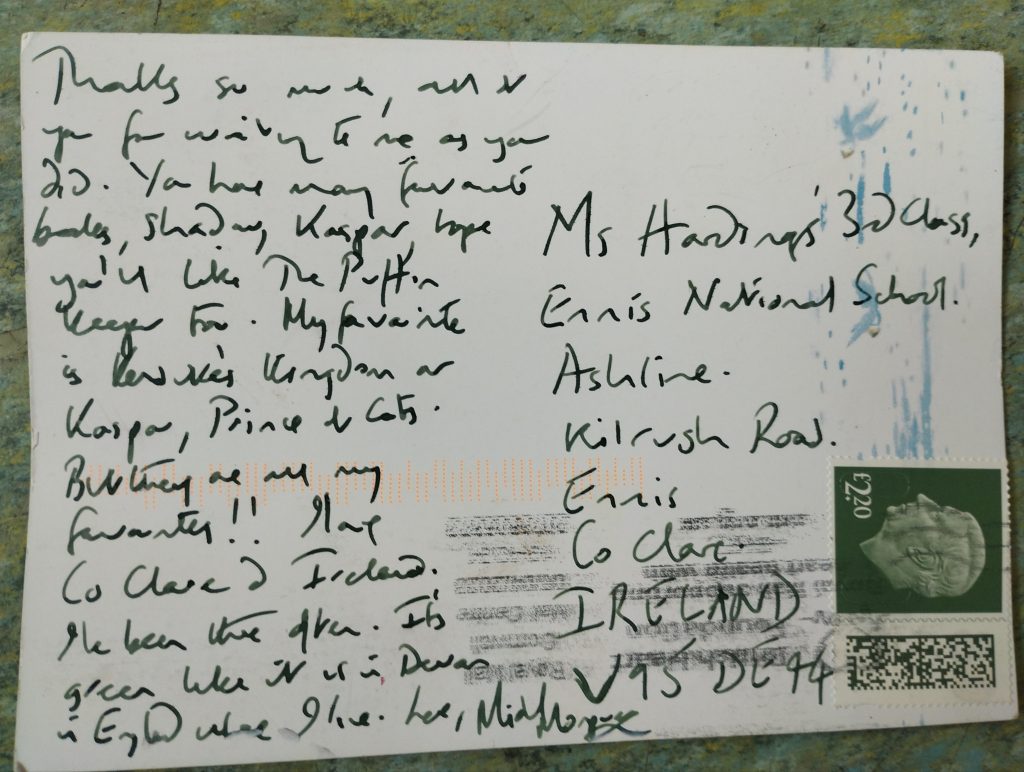 Thanks so much, all of
you for writing to me as you
did. You have many favourite
books, Shadow, Kaspar, hope
you'll like The Puffin
Keeper too. My favourite
is Kensuke's Kingdom or
Kaspar, Prince of Cats.
But they are all my
favourites!! I love
Co Clare & Ireland.
I've been there often. It's
green like it is in Devon
in England where I live. Love, Michael Morpurgo
Ms Hardings' 3rd Class,
Ennis National School.
Ashline.
Kilrush Road.
Ennis
Co Clare.
IRELAND
V95 DE94
£2.20